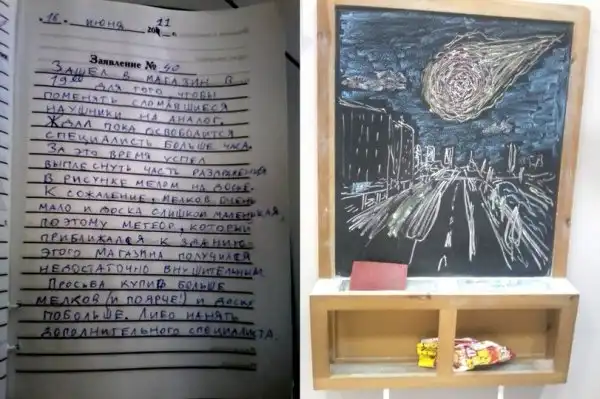 16. июня 2011 г.
Заявление № 40
Зашел в магазин в
19:00 для того чтобы
поменять сломавшиеся
наушники на аналог.
Ждал пока освободится
специалисть больше часа.
За это время успел
выплеснуть часть раздражения
в рисунке мелом на доске.
К сожалению, мелков очень
мало и доска слишком маленькая,
поэтому метеор, который
приближался к зданию
этого магазина получился
недостаточно внушительным.
Просьба купить больше
мелков (и поярче!) и доску
побольше. Либо нанять
дополнительного специалиста.